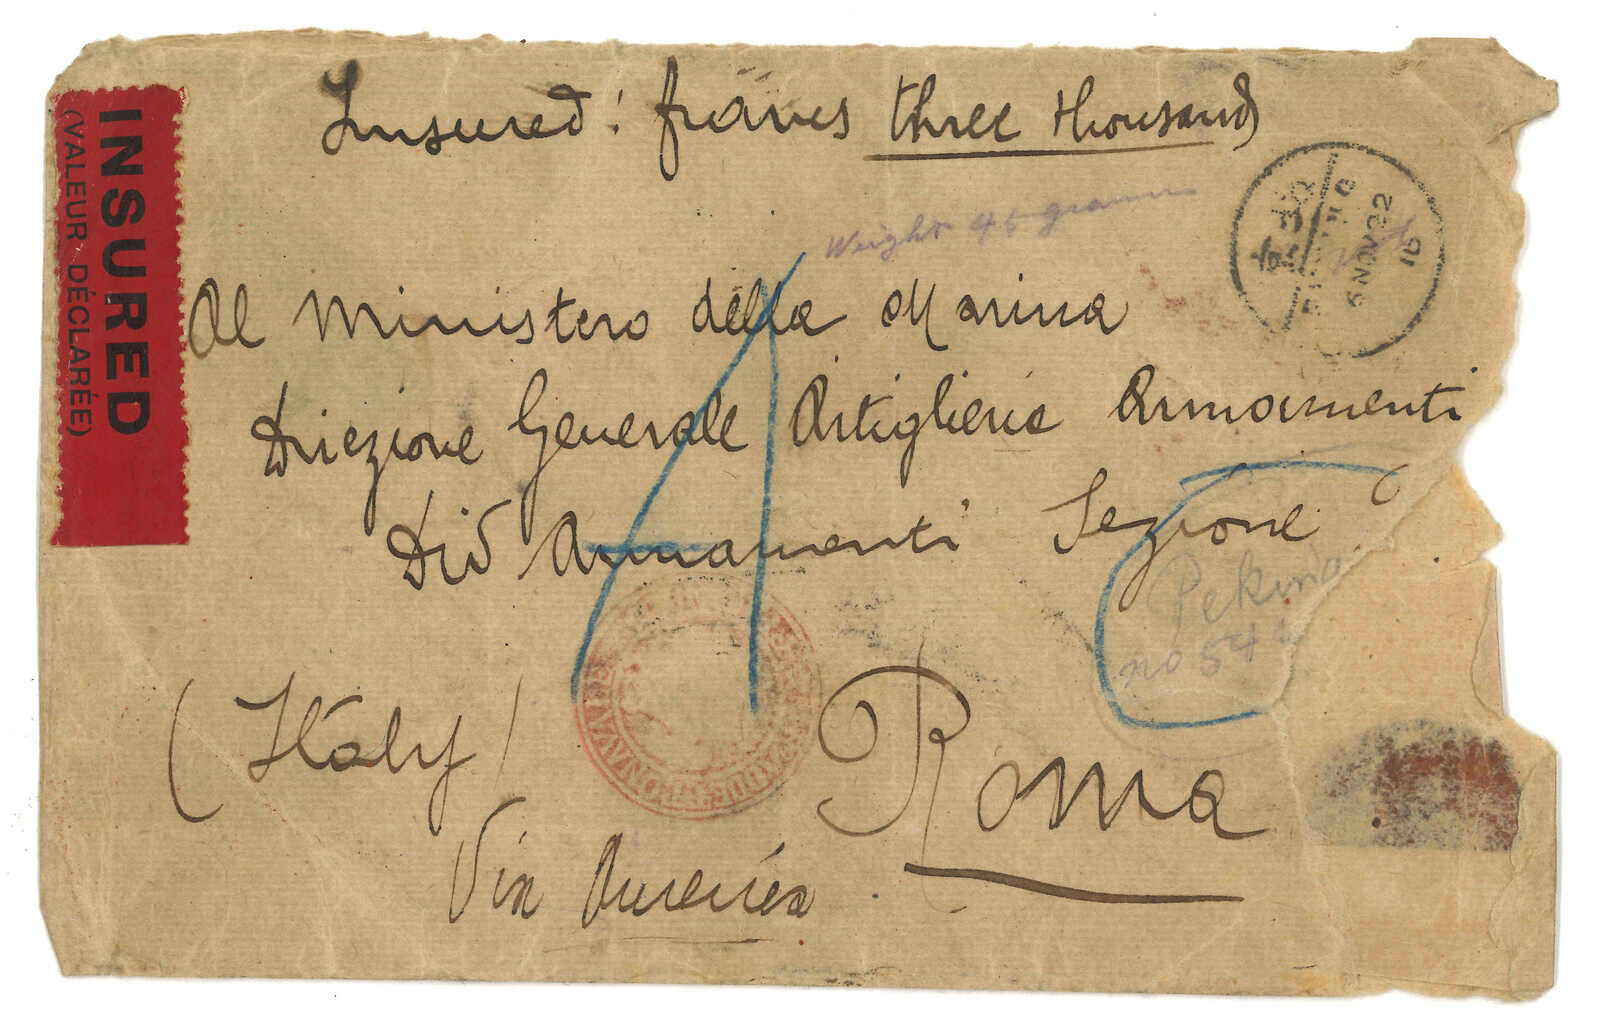 INSURED
(VALEUR DÉCLARÉE)
Insured: francs three thousand
Weight 46 gramm
6 NOV 22
16
Al Ministero della Marina
Direzione Generale Artiglieria Armamenti
Armamenti Sezione
Pekin
no 54
(Italy) Roma
Via America